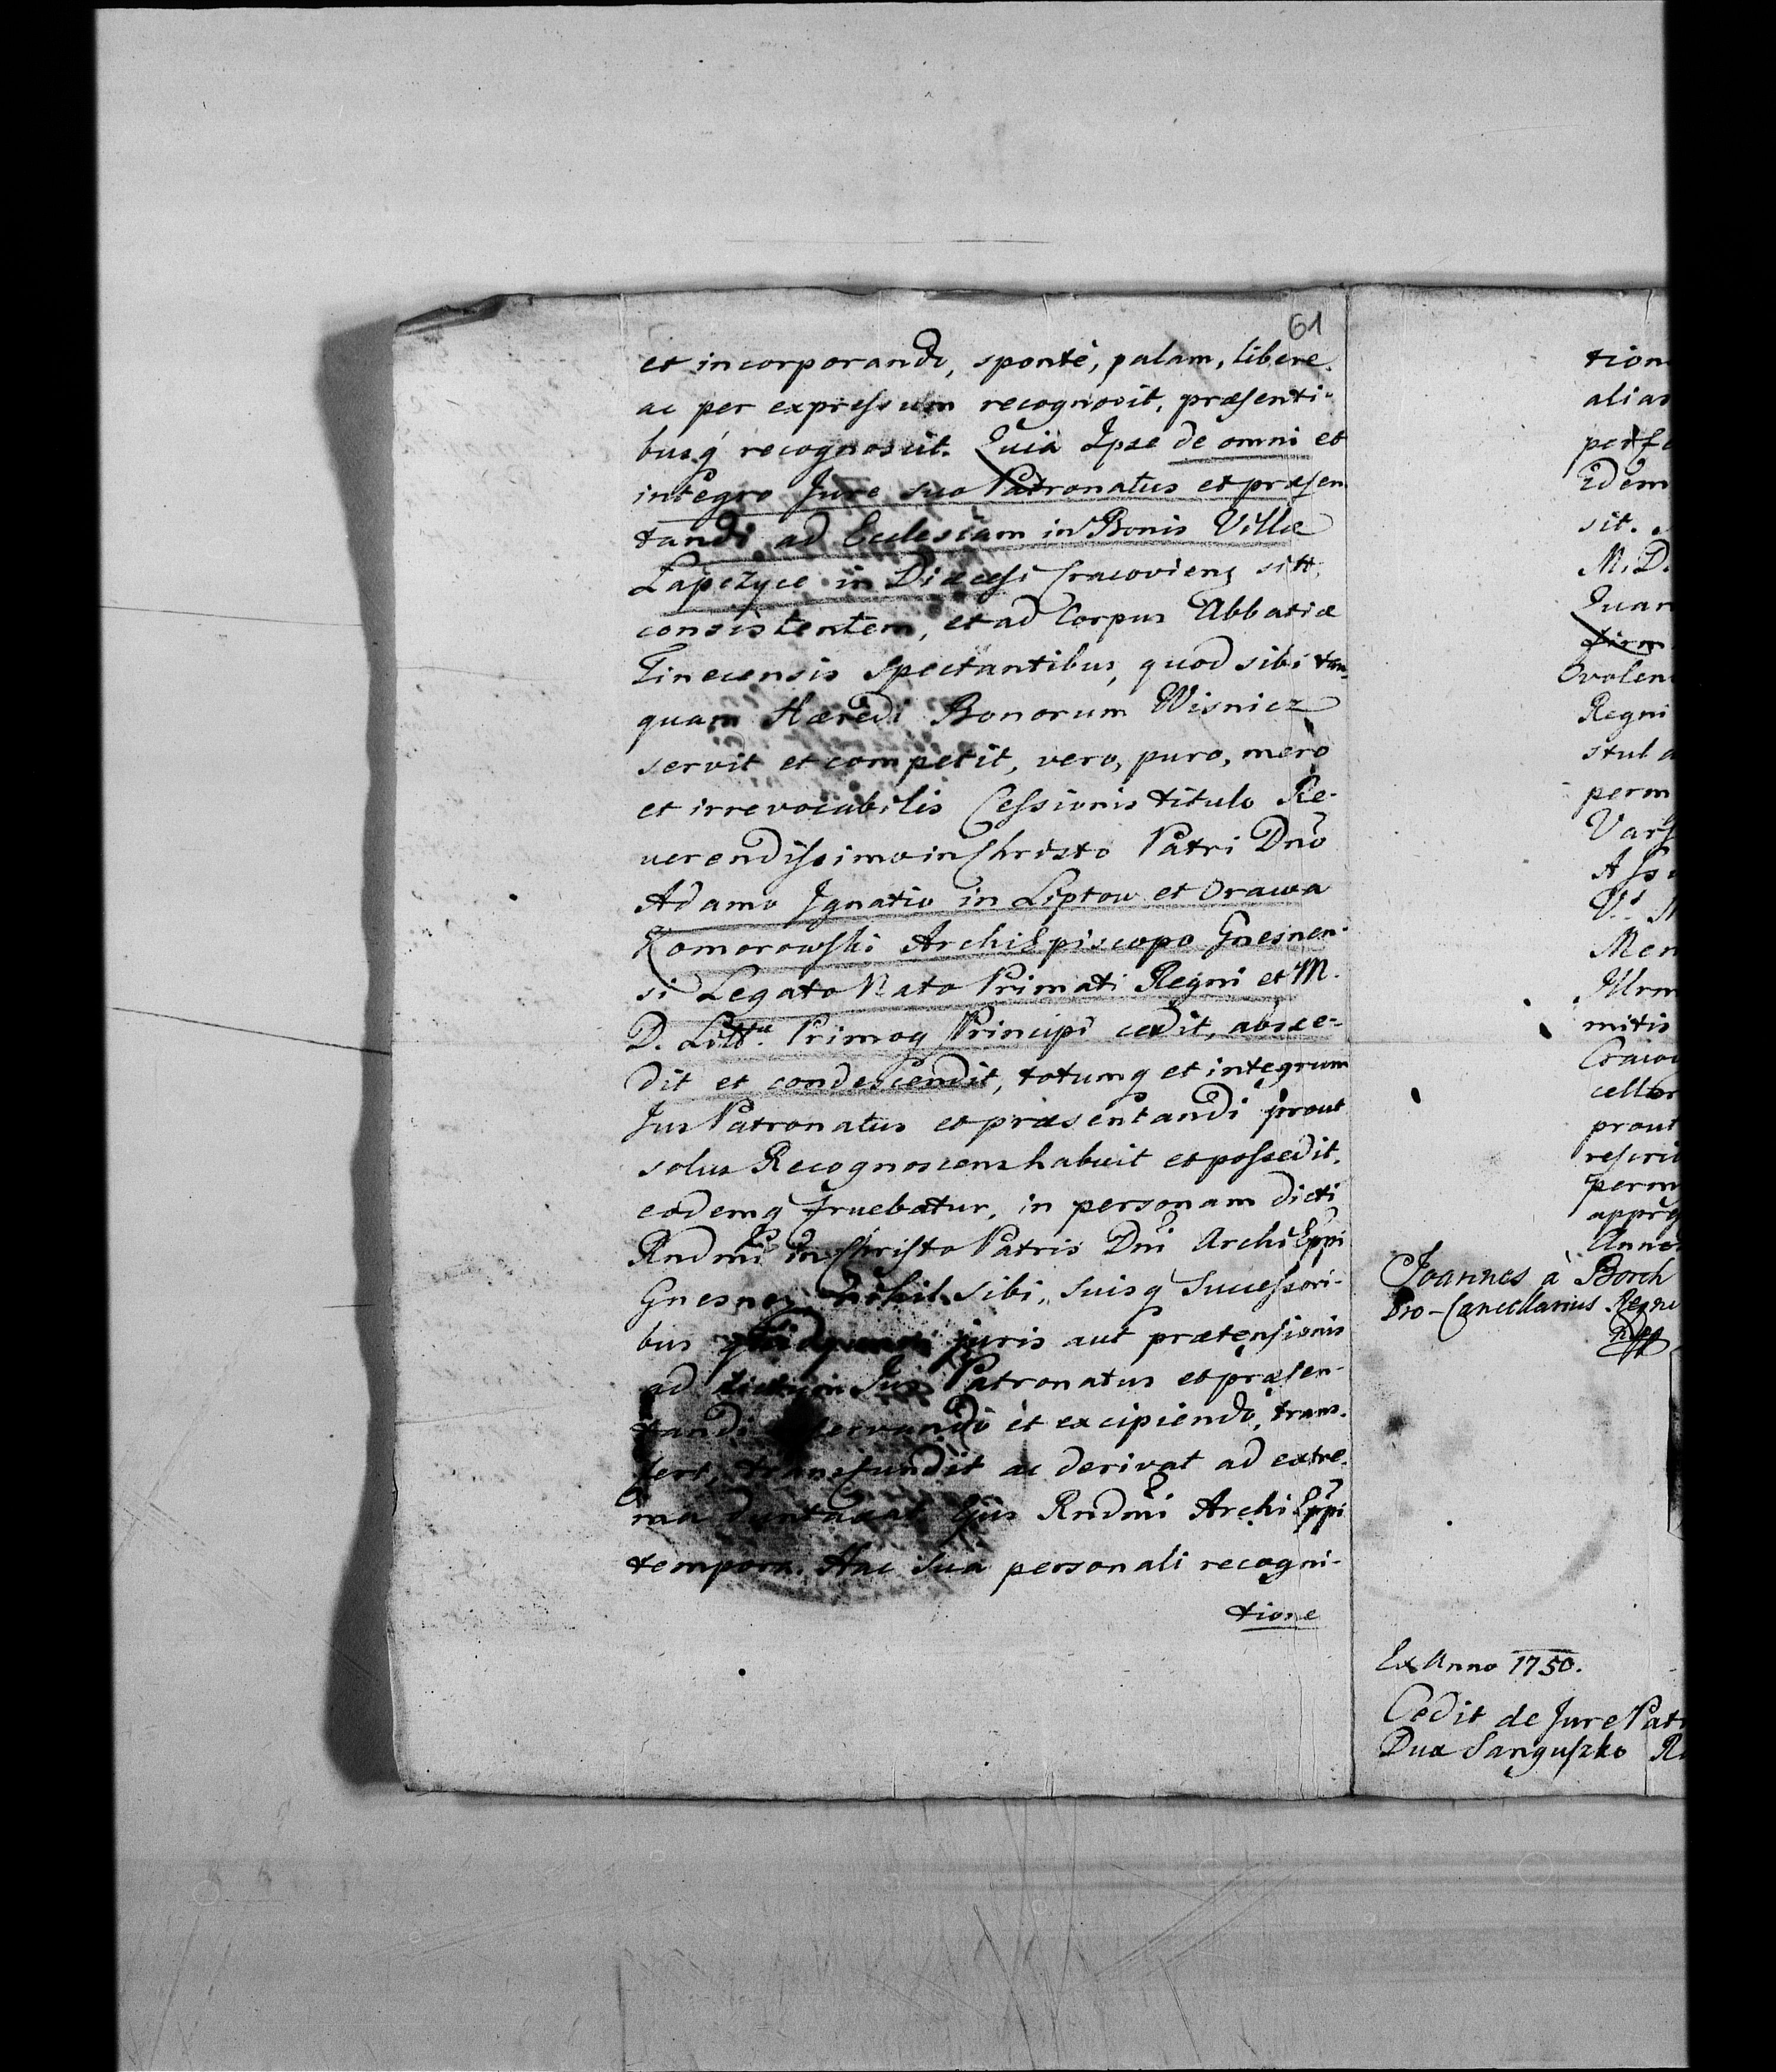 61
et incorporando, spontè, palam, libere
ac per expressum recognovit, præsenti-
busq́ recognoscit. Quia Ipse de omni et
integro Jure suo Patronatus et præsen
tandi ad Ecclesiam in Bonis Villæ
Łapczyce in Diæcesi Cracoviens sitt.
consistentem, et ad Corpus Abbatiæ
Tinecensis spectantibus, quod sibi tan-
quam Hæredi Bonorum Wisnicz
servit et competit, vero, puro, merò
et irrevocabilis Cessionis titulo Re-
verendissimo in Christo Patri Dnō
Adamo Ignatio in Liptow et Orawa
Komorowski Archi Episcopo Gnesnen-
si Legato Nato Primati Regni et M.
D. Litt.æ Primoq Principi cedit, absce-
dit et condescendit, totumq et integrum
Jus Patronatus et præsentandi prout
solus Recognoscens habuit et possedit,
eodemq fruebatur, in personam dicti
Rndmī in Christo Patris Dnī Archi Eppi
Gnesnen. Nihil sibi, suisq Successori-
bus juris aut prætensionis
ad dictum Jus Patronatus et præsen-
tandi et excipiendo, trans-
fert, transfundit ac derivat ad extre-
ma duntaxat Ejus Rndmi Archi Eppi
tempora. Hac sua personali recogni-
tione
tion
alias
perfe
Idem
sit.
M. D.
Quar
Ovolen
Regni
stul
perm
Vars
Men
Illrm
mitis
Cracov
cellar
prout
rescri
perm
Anno
Joannes à Borch
Pro-Cancellarius Regni
Ex Anno 1750.
Cedit de Jure Patr
Dux Sanguszko R